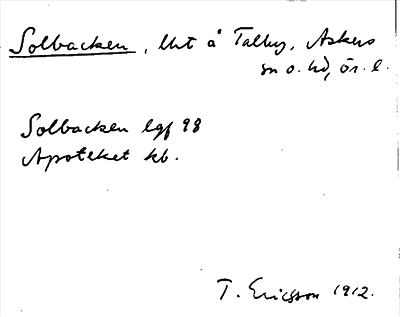 Solbacken, lht å Talby, Askers
sn o. hd, ör. l.
Solbacken lgf 98
Apoteket kb.
T. Ericsson 1912.